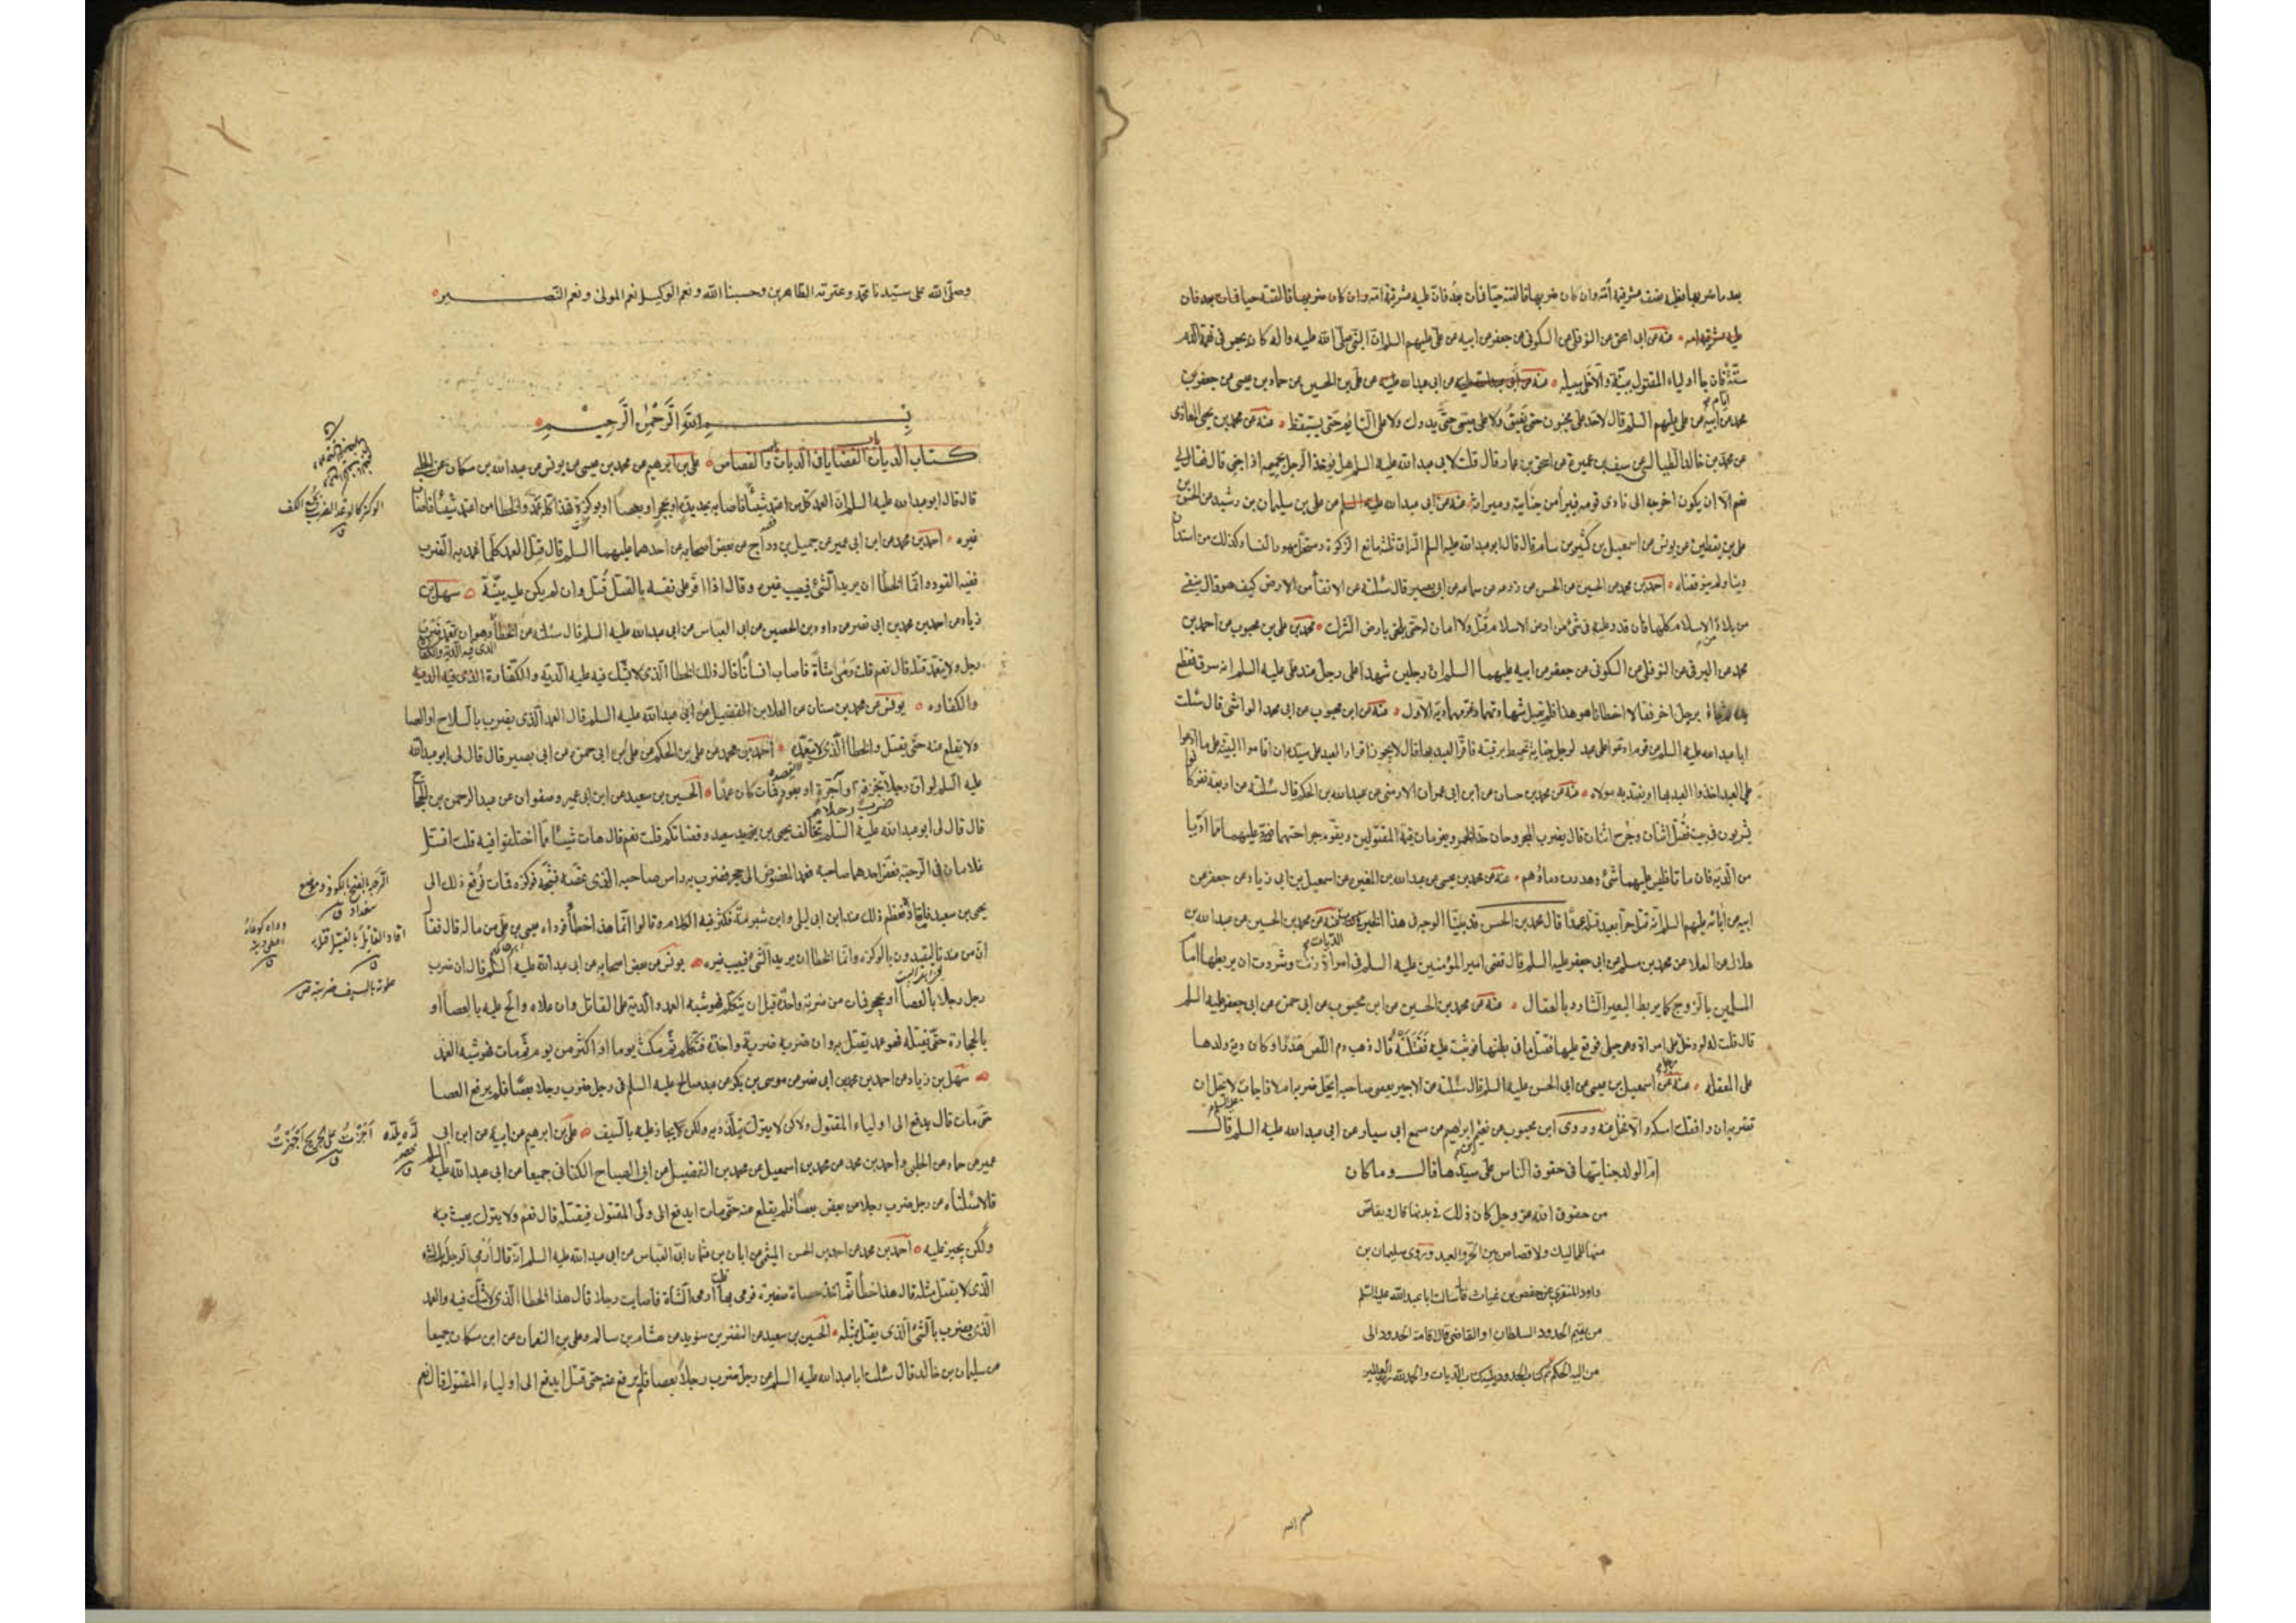 بعد ما ضربها فعليه نصف عشر قيمة أمّه وان كان ضربها فالقته حيّا فمات بعد فانّ عليه عشر قيمة امّه وان كان ضربها فالقته حيا فمات بعد فان
عليه عشر قيمة امه منه عن ابى اسحق عن النوفلى عن السكونى عن جعفر عن ابيه عن علىّ عليهم السلم انّ النبى صلّى الله عليه واله كان يحبس فى تهمة الدّم
ستّة ايام فان جاء اولياء المقتول ببيّنة والّا خلّى سبيله منه عن ابى عبدالله عن على بن الحسين عن حماد بن عيسى عن جعفر بن
محمد عن ابيه عن على عليهم السلم قال لاحدّ على مجنون حتى يفيق ولا على صبىّ حتّى يدرك ولا على النّائم حتى يستيقظ منه عن محمد بن يحيى المعاذى
عن محمد بن خالد الطيالسى عن سيف بن عميرة عن اسحق بن عمار قال قلت لابى عبد الله عليه السلم هل يؤخذ الرجل بحميمه اذا جنى قال فقال لى
نعم الّا ان يكون اخرجه الى نادى قومه فتبرأ من جنايته وميراثه منه عن ابى عبدالله عن على بن سليمان بن رشيد عن الحسن بن
على بن يقطين عن يونس عن اسمعيل بن كثير بن سام قال قال ابو عبدالله عليه السلم السراق ثلثة مانع الزكوة ومستحل مهور النساء وكذلك من استدان
دينا ولم ينو قضاه احمد بن محمد عن الحسين عن الحسن عن زرعه عن سماعه عن ابى بصير قال سئلته عن الانفاء من الارض كيف هو قال ينفى
من بلاد الاسلام كلّها فان قدر عليه فى شئ من ارض الاسلام قتل ولا امان له حتى يلحق بارض الشرك محمد بن على بن محبوب عن احمد بن
محمد عن البرقى عن النوفلى عن السكونى عن جعفر عن ابيه عليهما السلم ان رجلين شهدا على رجل عند على عليه السلم انه سرق فقطع
يده ثم جاءا برجل اخر فقالا اخطانا هو هذا فلم يقبل شهادتهما وغرمهما دية الاول منه عن ابن محبوب عن ابى محمد الوابشى قال سئلت
ابا عبدالله عليه السلم عن قوم ادعوا على عبد لرجل جناية تحيط برقبته فاقرّ العبد بها قال لا يجوز اقرار العبد على سيّده ان اقاموا البيّنة على ما ادعوا
على العبد اخذوا العبد بها او يفتديه مولاه منه عن محمد بن حسان عن ابن ابى عمران الارمنى عن عبد الله بن الحكم قال سئلته عن اربعة نفر كانوا
يشربون فى بيت فقُتل اثنان وجُرح اثنان قال يضرب المجروحان حدّ الخمر ويغرمان قيمة المقتولين ويقوّم جراحتهما فتردّ عليهما مما ادّيا
من الدّية فان ماتا فليس عليهما شئ وهدرت دماؤهم منه عن محمد بن عيسى عن عبدالله بن المغيرة عن اسمعيل بن ابى زياد عن جعفر عن
ابيه عن ابائه عليهم السلم انّه قتل حرّا بعبد قتله عمدًا قال محمد بن الحسن قد بيّنّا الوجه فى هذا الخبر منه عن محمد بن الحسين عن عبدالله بن
هلال عن العلا عن محمد بن مسلم عن ابى جعفر عليه السلم قال قضى امير المؤمنين عليه السلم فى امراة زنت وشردت ان يربطها امام
المسلمين بالزوج كما يربط البعير الشارد بالعقال منه عن محمد بن الحسين عن ابن محبوب عن ابى حمزه عن ابى جعفر عليه السلم
قال قلت له لو دخل على امراة وهى حبلى فوقع عليها فقتل ما فى بطنها فوثبت عليه فَقَتَلَتْهُ قال ذهب دم اللّص هدرًا وكان دية ولدها
على المعقلة منه عن اسمعيل بن عيسى عن ابى الحسن عليه السلم قال سئلته عن الاجير يعصى صاحبه ايحلّ ضربه ام لا فاجاب لا يحل ان
تضربه ان وافقك امسكه والّا فخلّ عنه وروى ابن محبوب عن نعيم بن ابراهيم عن مسمع ابى سيار عن ابى عبدالله عليه السلم قال
امّ الولد جنايتها فى حقوق الناس على سيّدها قال وما كان
من حقوق الله عزّ وجل كان ذلك فى بدنها قال ويقاصّ
منها للمماليك ولا قصاص بين الحرّ والعبد وروى سليمان بن
داود المنقرى عن حفص بن غياث قال سألت ابا عبدالله عليه السّلم
من يقيم الحدود السلطان او القاضى قال اقامة الحدود الى
من اليه الحكم تم كتاب الحدود ويليه كتاب الديات والحمد لله ربّ العالمين
وصلّى الله على سيّدنا محمّد وعترته الطّاهرين وحسبنا الله ونعم الوكيل نعم المولى ونعم النّصير
بِسْمِ اللهِ الرَّحْمٰنِ الرَّحِيْمِ
كتاب الدّيات باب القضايا فى الدّيات والقصاص على بن ابرهيم عن محمد بن عيسى عن يونس عن عبدالله بن مسكان عن الحلبى
قال قال ابو عبدالله عليه السلم انّ العمد كلّ من اعتمد شيئًا فاصابه بحديدة او بحجر او بعصا او بوكزة فهذا كلّه عمدٌ والخطا من اعتمد شيئًا فاصاب
غيره احمد بن محمد عن ابن ابى عمير عن جميل بن درّاج عن بعض اصحابه عن احدهما عليهما السلم قال قتل العمد كلّما عمد به الضرب
ففيه القود وانّما الخطا ان يريد الشئ فيصيب غيره وقال اذا اقرّ على نفسه بالقتل قُتل وان لم يكن عليه بيّنة سهل بن
زياد عن احمد بن محمد بن ابى نصر عن داود بن الحصين عن ابى العباس عن ابى عبدالله عليه السلم قال سئلته عن الخطأ
الذى فيه الدّية والكفارة
رجل ولا يتعمّد قتله قال نعم قلت رمى شاةً فاصاب انسانًا قال ذلك الخطأ الّذى لا شكّ فيه عليه الدّية والكفّارة الذى فيه الدية
والكفاره يونس عن محمد بن سنان عن العلا بن الفضيل عن ابى عبدالله عليه السلم قال العمد الّذى يضرب بالسلاح او العصا
ولا يقلع عنه حتّى يقتل والخطأ الّذى لا يتعمّده احمد بن محمد عن على بن الحكم عن على بن ابى حمزه عن ابى بصير قال قال لى ابو عبدالله
عليه السلم لو ان رجلا ضرب رجلا بخزفة او آجرة او بعود فمات كان عمدًا الحسين بن سعيد عن ابن ابى عمير وصفوان عن عبد الرحمن بن الحجاج
قال قال لى ابو عبدالله عليه السلم تخالف يحيى بن سعيد وقضاتكم قلت نعم قال هات شيئًا ممّا اختلفوا فيه قلت اقتتل
غلامان فى الرّحبة فعضّ احدهما صاحبه فعمد المعضوض الى حجر فضرب به راس صاحبه الذى عضّه فشجّه فوكزه فمات فرُفع ذلك الى
يحيى بن سعيد فاقاده فعظم ذلك عند ابن ابى ليلى وابن شبرمة فكثر فيه الكلام وقالوا انّما هذا خطأ فوداه عيسى بن على من ماله قال فقال
انّ من عندنا ليقيدون بالوكزة وانّما الخطا ان يريد الشّئ فيصيب غيره يونس عن بعض اصحابه عن ابى عبدالله عليه السلم قال ان ضرب
رجل رجلا بالعصا او بحجر فمات من ضربة واحدة قبل ان يتكلم فهو شبه العمد والدّية على القاتل وان علاه والحّ عليه بالعصا او
بالحجارة حتّى يقتله فهو عمد يقتل به وان ضربه ضربة واحدة فتكلم ثم مكث يوما او اكثر من يوم ثم مات فهو شبه العمد
سهل بن زياد عن احمد بن محمد بن ابى نصر عن موسى بن بكر عن عبد صالح عليه السلم فى رجل ضرب رجلا بعصًا فلم يرفع العصا
حتى مات قال يدفع الى اولياء المقتول ولكن لا يترك يتلذّذ به ولكن يجاز عليه بالسّيف على بن ابرهيم عن ابيه عن ابن ابى
عمير عن حماد عن الحلبى واحمد بن محمد عن محمد بن اسمعيل عن محمد بن الفضيل عن ابى الصباح الكنانى جميعا عن ابى عبدالله عليه السلم
قالا سئلناه عن رجل ضرب رجلا بعصًا فلم يقلع عنه حتّى مات ايدفع الى ولىّ المقتول فيقتله قال نعم ولا يترك يعبث به
ولكن يجيز عليه احمد بن محمد عن احمد بن الحسن الميثمى عن ابان بن عثمان عن ابى العبّاس عن ابى عبدالله عليه السلم انّه قال ارمى الرجل بالشئ
الّذى لا يقتل مثله قال هذا خطأ ثم اخذ حصاة صغيرة فرمى بها قلت ارمى الشّاة فاصابت رجلا قال هذا الخطأ الّذى لا شكّ فيه والعمد
الّذى يضرب بالشّئ الّذى يقتل بمثله الحسين بن سعيد عن النضر بن سويد عن هشام بن سالم وعلى بن النعمان عن ابن مسكان جميعا
عن سليمان بن خالد قال سئلت ابا عبدالله عليه السلم عن رجل ضرب رجلاً بعصا فلم يرفع عنه حتى قتل ايدفع الى اولياء المقتول قال نعم
الوكز كالوعد الضرب بجمع الكف
الرّحبة بالفتح بالكوفة وموضع
ببغداد
اقاد القاتل بالقتيل قتله
علوته بالسيف ضربته